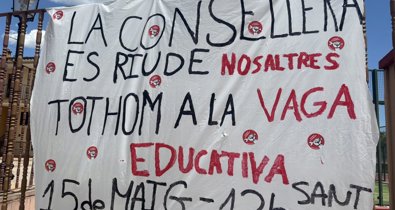 LA CONSELLERA
ES RIU DE NOSALTRES
TOTHOM A LA VAGA
EDUCATIVA
15 de MAIG - 12h SANT